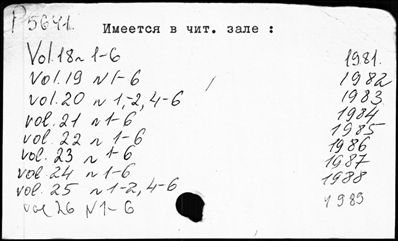 P5641.
Имеется в чит. зале :
Vol.18 n 1-6 1981.
vol.19 n 1-6 1982
vol.20 n 1,-2, 4-6 1983
vol.21 n 1-6 1984
vol.22 n 1-6 1985
vol.23 n 1-6 1986
vol.24 n 1-6 1987
vol.25 n 1-2, 4-6 1988
vol 26 N 1-6 1989